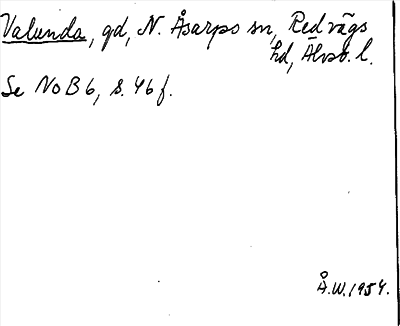 Valunda, gd, N. Åsarps sn, Redvägs
hd, Älvsb. l.
Se NoB 6, s. 46 f.
Å.W. 1954.